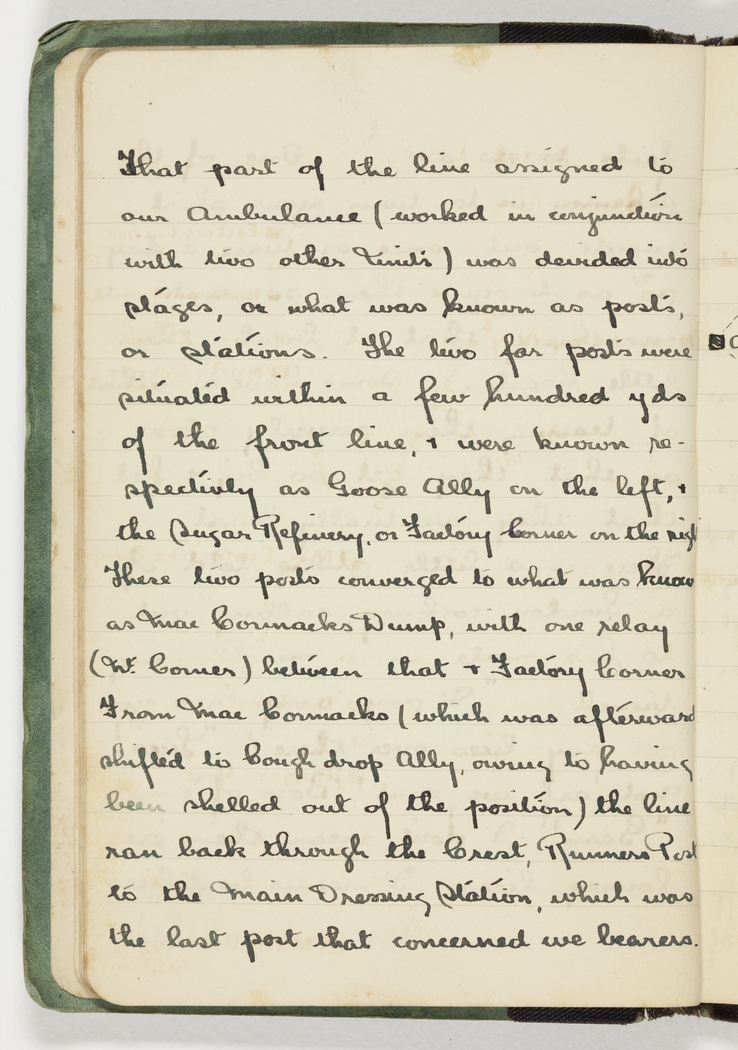 That part of the line assigned to
our Ambulance (worked in conjunction
with two other Units) was devided into
stages, or what was known as posts,
or stations. The two far posts were
situated within a few hundred yds
of the front line, + were known re-
spectivly as Goose Ally on the left, +
the Sugar Refinery, or Factory Corner on the righ
These two posts converged to what was know
as Mac Cormacks Dump, with one relay
(W. Corner) between that + Factory Corner
From Mac Cormacks (which was afterward
shifted to Cough drop Ally, owing to having
been shelled out of the position) the line
ran back through the Crest, Runners Post
to the Main Dressing Station, which was
the last post that concerned we bearers.